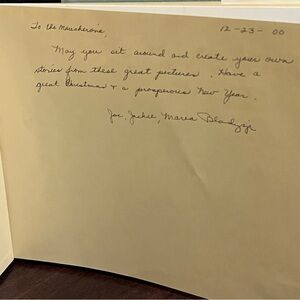 To the Moucheron's, 12-23-00
May you sit around and create your own
stories from these great pictures. Have a
great Christmas & a prosperous New Year.
Joe, Jackie, Maria